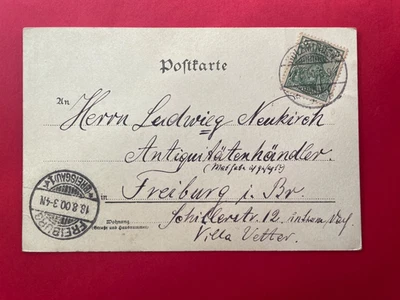 Postkarte
An
Herrn Ludwieg Neukirch
Antiquitätenhändler.
in Freiburg i. Br.
Wohnung
(Straße und Hausnummer)
Schillerstr. 12.
Villa Vetter.
FREIBURG
(BREISGAU) 1
18.8.00. 3-4N